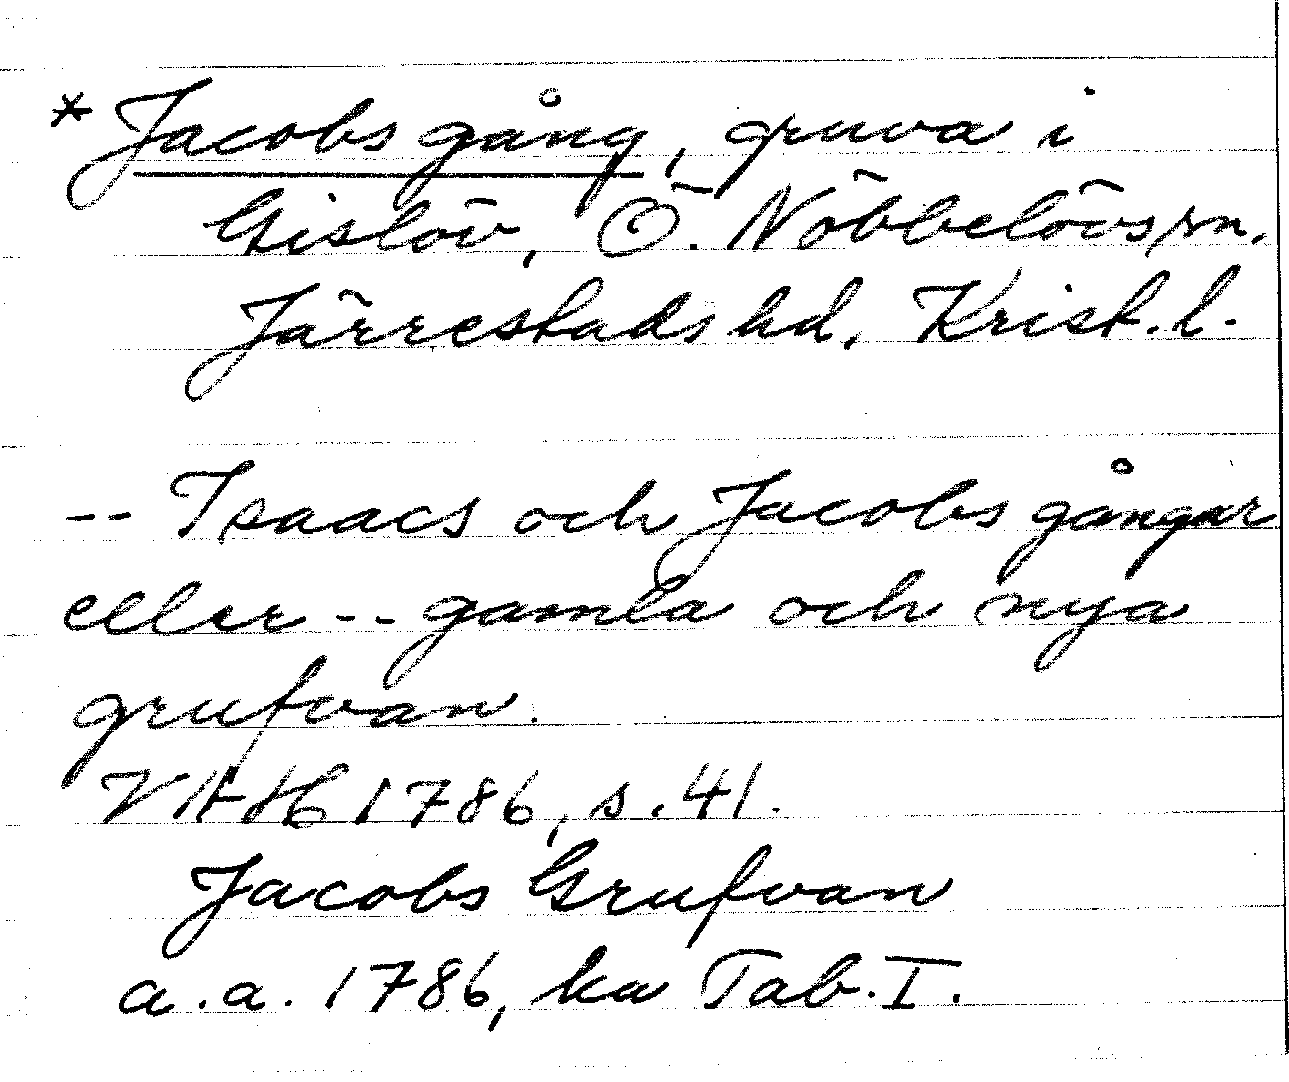 * Jacobs gång, gruva i
Gislöv, Ö. Nöbbelövs sn.
Järrestads hd. Krist. l.
-- Isaacs och Jacobs gångar
eller -- gamla och nya
grufvan.
VAH 1786, s. 41.
Jacobs Grufvan
a.a. 1786, ka Tab. I.